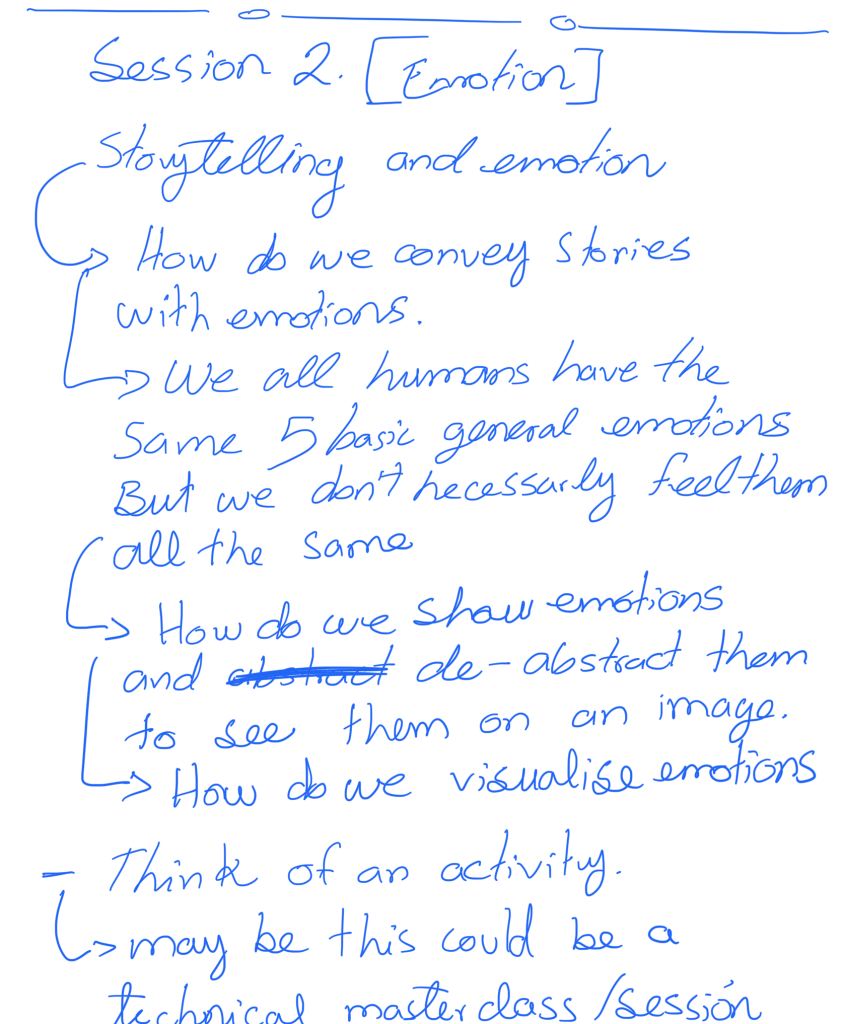 Session 2. [Emotion]
Storytelling and emotion
How do we convey stories
with emotions.
We all humans have the
Same 5 basic general emotions
But we don't necessarly feel them
all the same
How do we show emotions
and abstract de-abstract them
to see them on an image.
How do we visualise emotions
- Think of an activity.
may be this could be a
technical masterclass/sessión